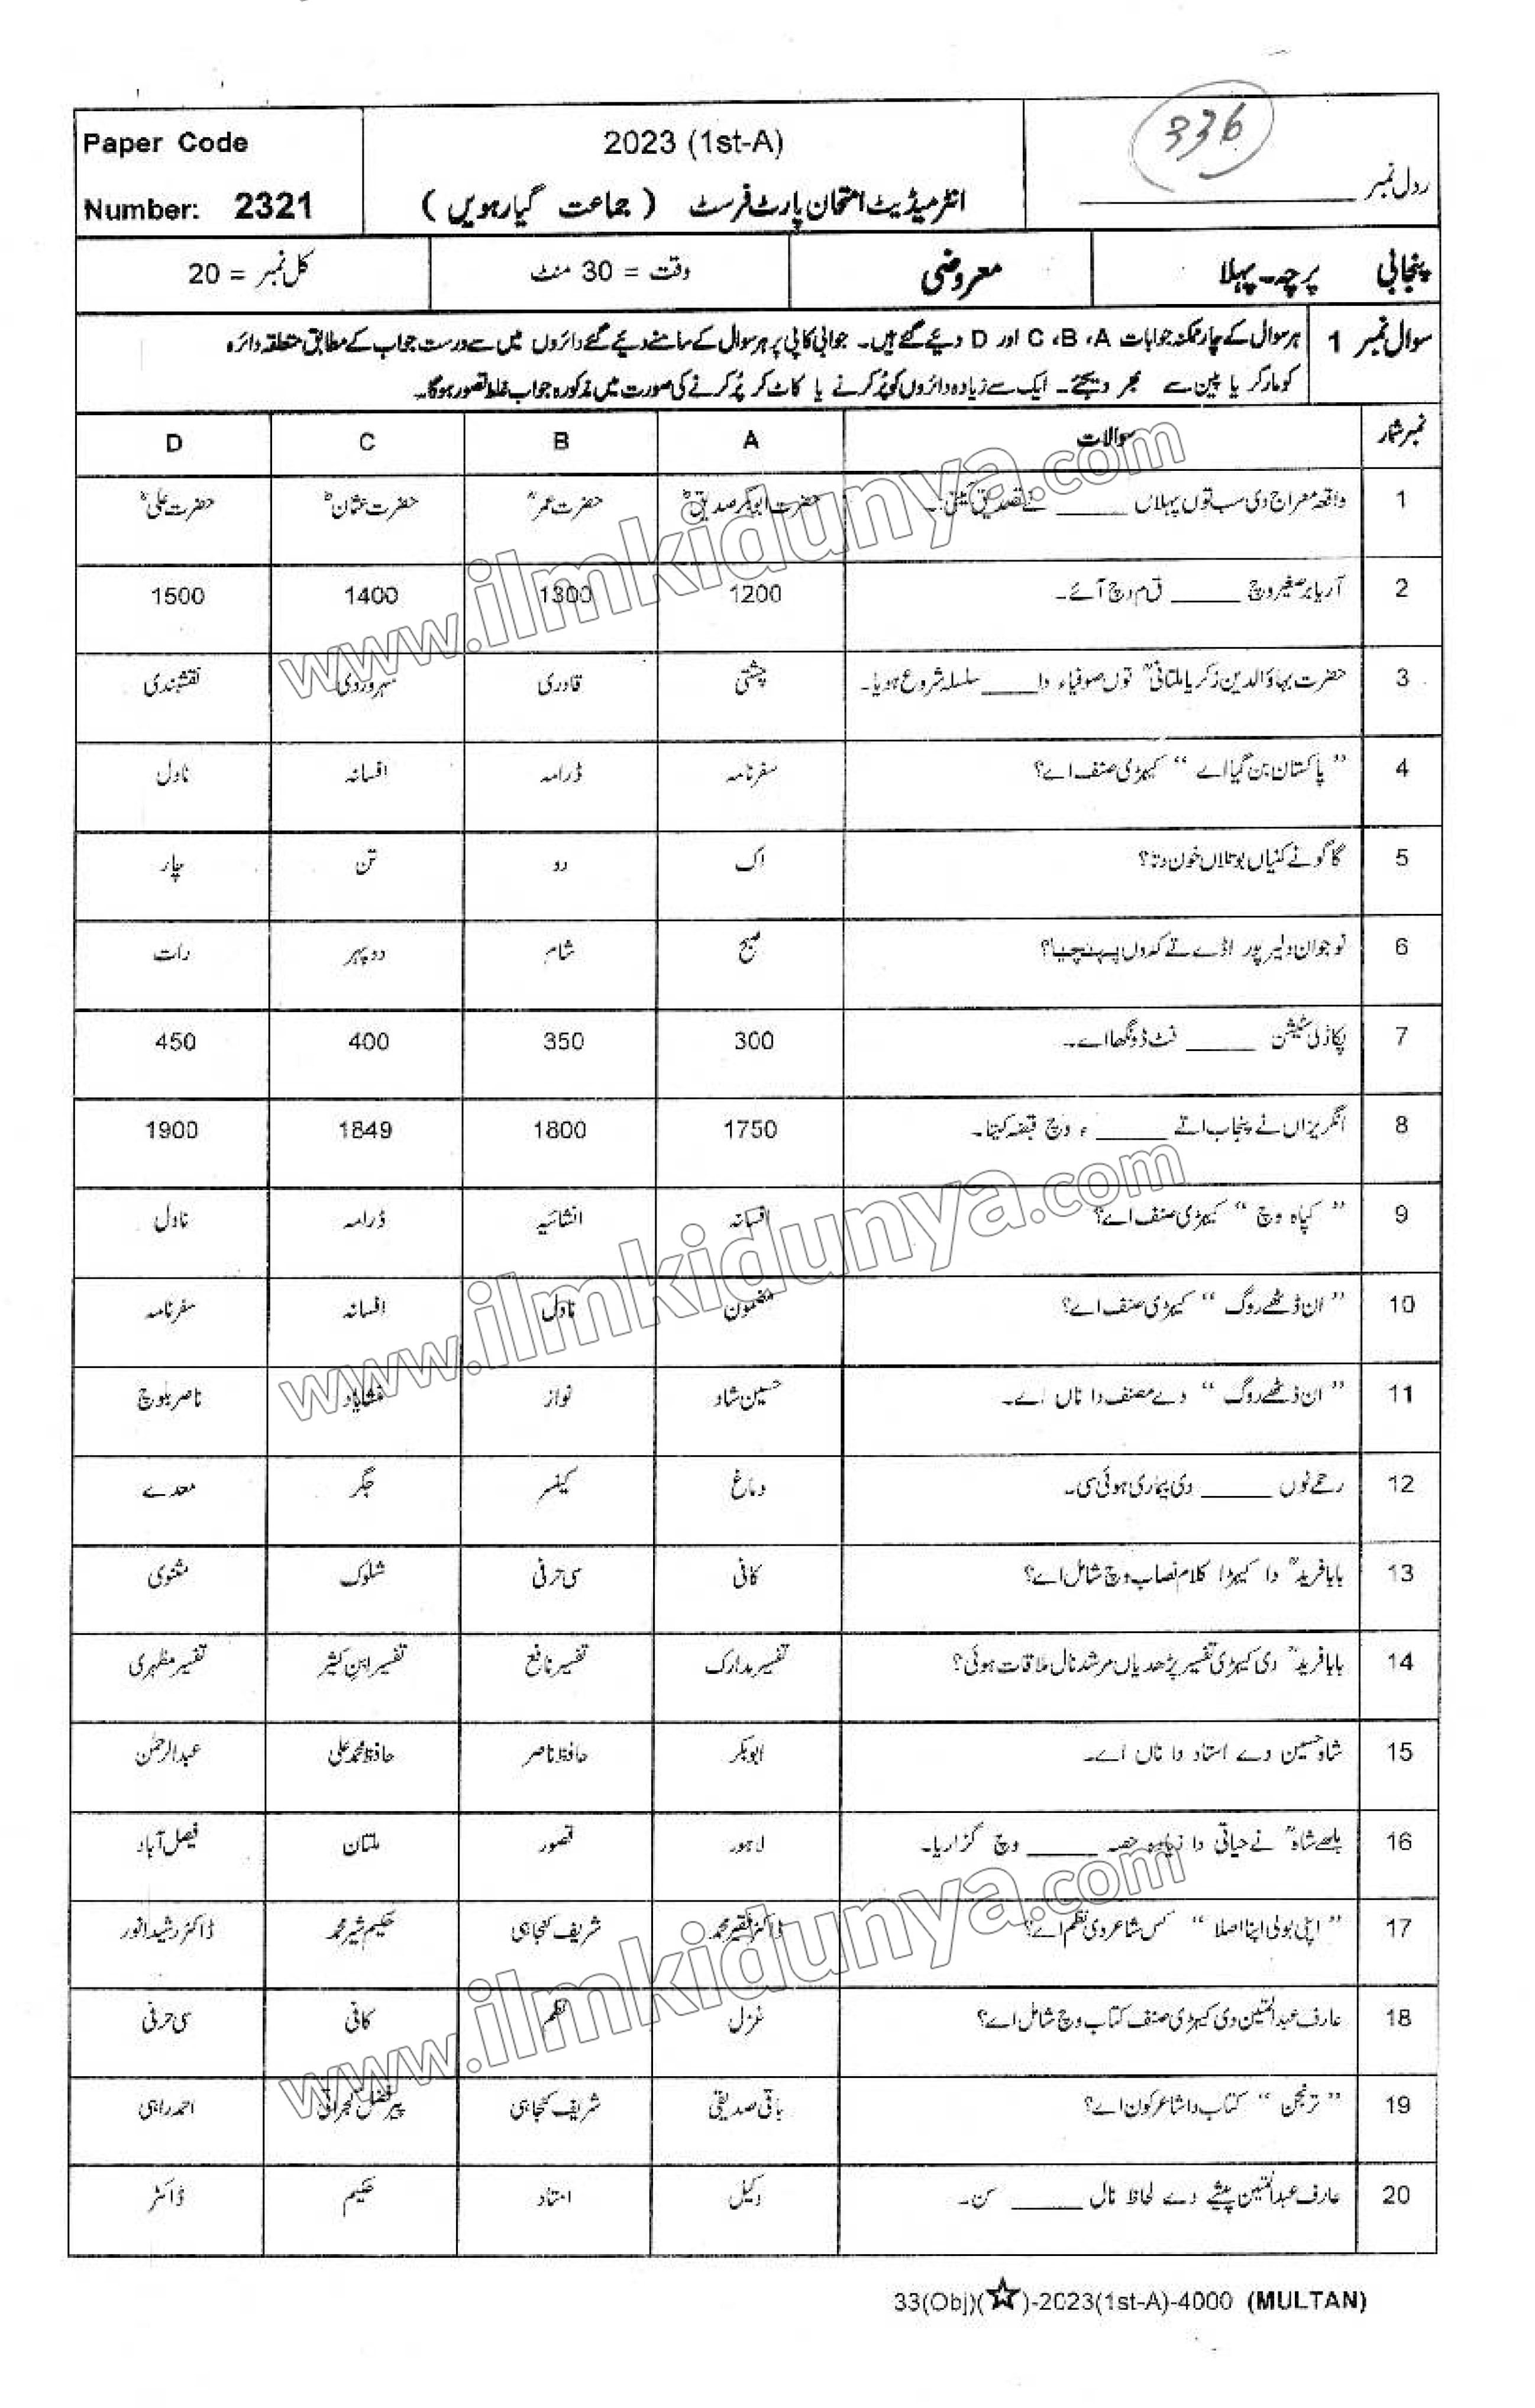 Paper Code
Number: 2321
2023 (1st-A)
انٹرمیڈیٹ امتحان پارٹ فرسٹ ( جماعت گیارہویں )
336
رول نمبر
پنجابی پرچہ۔پہلا
معروضی
وقت = 30 منٹ
کل نمبر = 20
سوال نمبر 1 ہر سوال کے چار ممکنہ جوابات A، B، C اور D دیئے گئے ہیں۔ جوابی کاپی پر ہر سوال کے سامنے دیئے گئے دائروں میں سے درست جواب کے مطابق متعلقہ دائرہ
کو مارکر یا پین سے بھر دیجئے۔ ایک سے زیادہ دائروں کو پُر کرنے یا کاٹ کر پُر کرنے کی صورت میں مذکورہ جواب غلط تصور ہوگا۔
نمبر شمار سوالات A B C D
1 واقعہ معراج دی سب توں پہلاں _____ نے تصدیق کیتی۔ حضرت ابوبکر صدیقؓ حضرت عمرؓ حضرت عثمانؓ حضرت علیؓ
2 آریا برصغیر وچ _____ ق م وچ آئے۔ 1200 1300 1400 1500
3 حضرت بہاؤالدین زکریا ملتانیؒ توں صوفیاء دا _____ سلسلہ شروع ہویا۔ چشتی قادری سہروردی نقشبندی
4 ”پاکستان بن گیا اے“ کیہڑی صنف اے؟ سفرنامہ ڈرامہ افسانہ ناول
5 گاگو نے کنیاں بوتلاں خون دتا؟ اک دو تن چار
6 نوجوان دلیر پور اڈے تے کدوں پہنچیا؟ صبح شام دوپہر رات
7 پکاڈلی سٹیشن _____ فٹ ڈونگھا اے۔ 300 350 400 450
8 انگریزاں نے پنجاب اتے _____ ء وچ قبضہ کیتا۔ 1750 1800 1849 1900
9 ”کپاہ وچ“ کیہڑی صنف اے؟ افسانہ انشائیہ ڈرامہ ناول
10 ”ان ڈٹھے روگ“ کیہڑی صنف اے؟ مضمون ناول افسانہ سفرنامہ
11 ”ان ڈٹھے روگ“ دے مصنف دا ناں اے۔ حسین شاد نواز منشایاد ناصر بلوچ
12 رحمے نوں _____ دی بیماری ہوئی سی۔ دماغ کینسر جگر معدے
13 بابا فریدؒ دا کیہڑا کلام نصاب وچ شامل اے؟ کافی سی حرفی شلوک مثنوی
14 بابا فریدؒ دی کیہڑی تفسیر پڑھدیاں مرشد نال ملاقات ہوئی؟ تفسیر مدارک تفسیر نافع تفسیر ابن کثیر تفسیر مظہری
15 شاہ حسین دے استاد دا ناں اے۔ ابوبکر حافظ ناصر حافظ محمد علی عبدالرحمٰن
16 بلھے شاہؒ نے حیاتی دا زیادہ حصہ _____ وچ گزاریا۔ لاہور قصور ملتان فیصل آباد
17 ”اپنی بولی اپنا اصلا“ کس شاعر دی نظم اے؟ ڈاکٹر فقیر محمد شریف کنجاہی حکیم شیر محمد ڈاکٹر رشید انور
18 عارف عبدالمتین دی کیہڑی صنف کتاب وچ شامل اے؟ غزل نظم کافی سی حرفی
19 ”ترنجن“ کتاب دا شاعر کون اے؟ باقی صدیقی شریف کنجاہی پیر فضل گجراتی احمد راہی
20 عارف عبدالمتین پیشے دے لحاظ نال _____ سن۔ وکیل استاد حکیم ڈاکٹر
33(Obj)(☆)-2023(1st-A)-4000 (MULTAN)
www.ilmkidunya.com
www.ilmkidunya.com
www.ilmkidunya.com